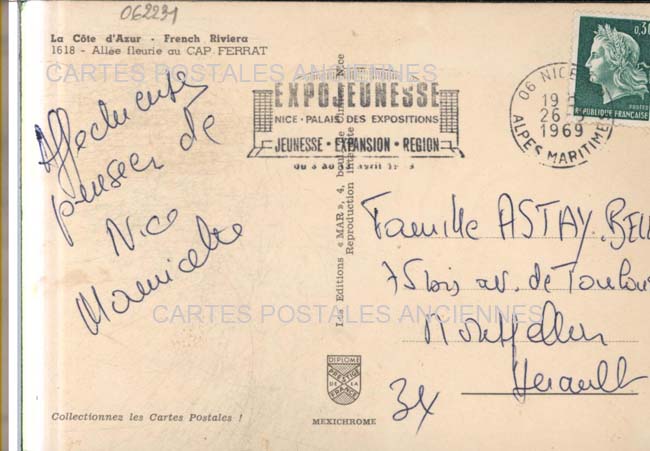 062231
La Côte d'Azur - French Riviera
1618 - Allée fleurie au CAP FERRAT
CARTES POSTALES ANCIENNES
Affectueuses
pensées de
Nice
EXPOJEUNESSE
NICE · PALAIS DES EXPOSITIONS
JEUNESSE · EXPANSION · REGION
avril
06 NICE
19
26 -3
1969
ALPES MARITIME
0,30
POSTES
REPUBLIQUE FRANÇAISE
Les Editions « MAR », 4, Nice
Reproduction interdite
Famille ASTAY. BE
75 bis av. de Toulou
Montpellier
Herault
34
CARTES POSTALES ANCIENNES
DIPLOME
PRESTIGE
DE LA
FRANCE
MEXICHROME
Collectionnez les Cartes Postales !